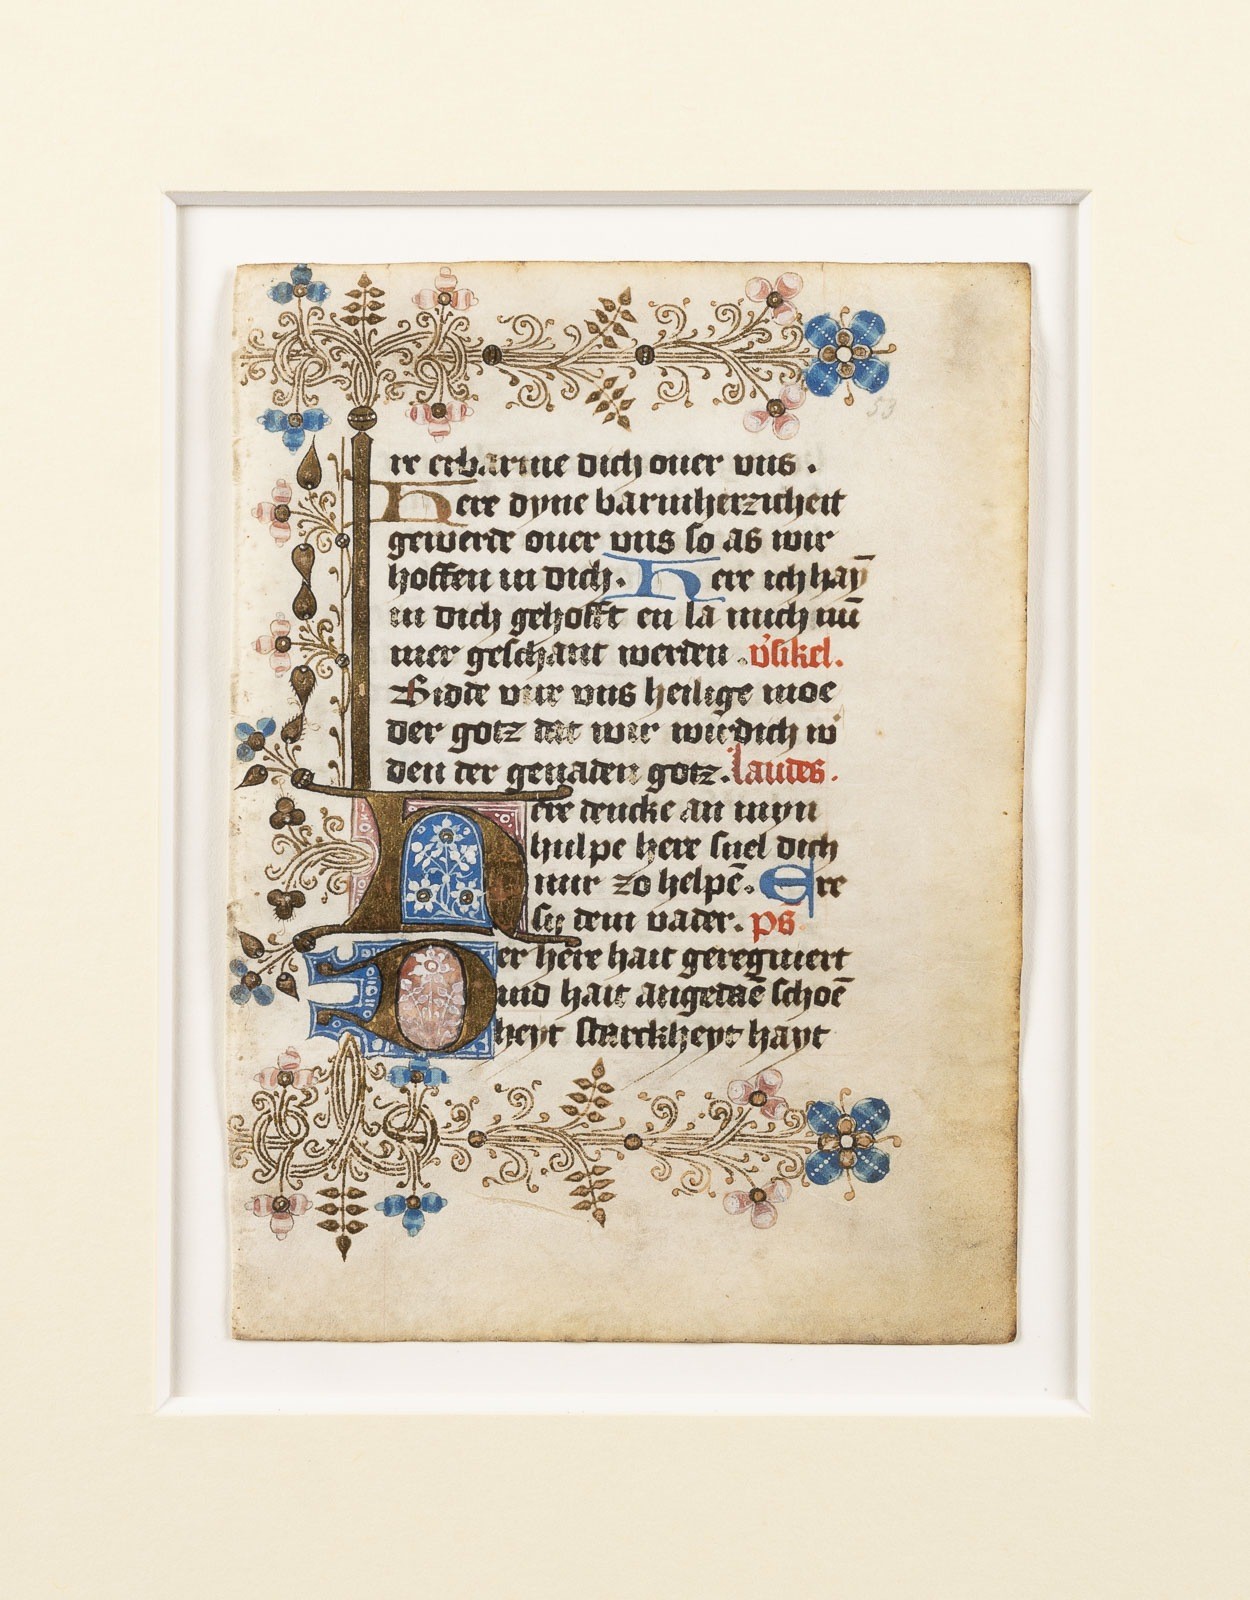 53
re erbarme dich ouer vns .
Here dyne barmherzicheit
gewerde ouer vns so as wir
hoffen in dich. Here ich hay̅
in dich gehofft en la mich nu̅
mer geschant werden . v᾽sikel.
Bidde vur vns heilige moe
der gotz dat wir wirdich w᾽
den der genaden gotz. laudes.
Here dencke an myn
hulpe here snel dich
mir zo helpe̅. Ere
sy dem vader. ps̅
Der here hait gereguiert
vnd hait angedae̅ schoe̅
heyt starckheyt hayt